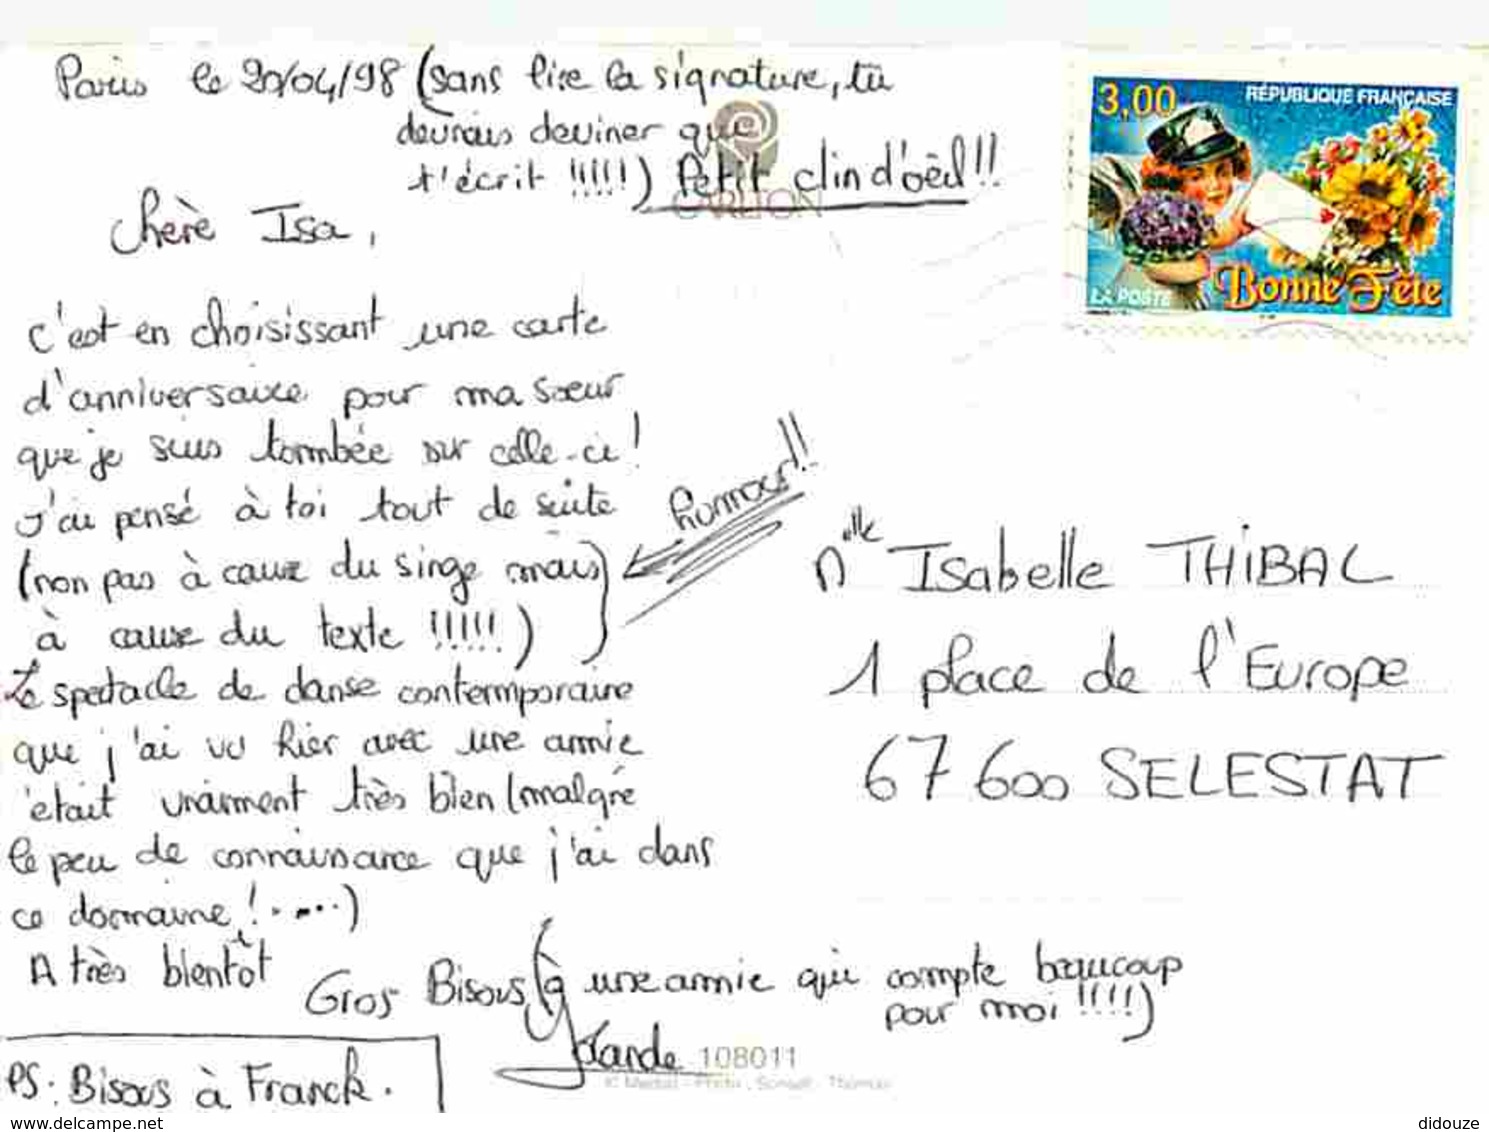 Paris le 20/04/98 (sans lire la signature, tu
devrais deviner que
t'écrit !!!!!) Petit clin d'oeil!!
CARLTON
Chère Isa,
c'est en choisissant une carte
d'anniversaire pour ma soeur
que je suis tombée sur celle-ci!
J'ai pensé à toi tout de suite
(non pas à cause du singe mais
à cause du texte !!!!!)
humour!!
Le spectacle de danse contemporaine
que j'ai vu hier avec une amie
était vraiment très bien (malgré
le peu de connaissance que j'ai dans
ce domaine!.....)
A très bientôt
Gros Bisous (à une amie qui compte beaucoup
pour moi !!!!)
Yolande
108011
PS: Bisous à Franck.
3,00
RÉPUBLIQUE FRANÇAISE
LA POSTE
Bonne Fête
Mlle Isabelle THIBAL
1 place de l'Europe
67 600 SELESTAT
www.delcampe.net
didouze